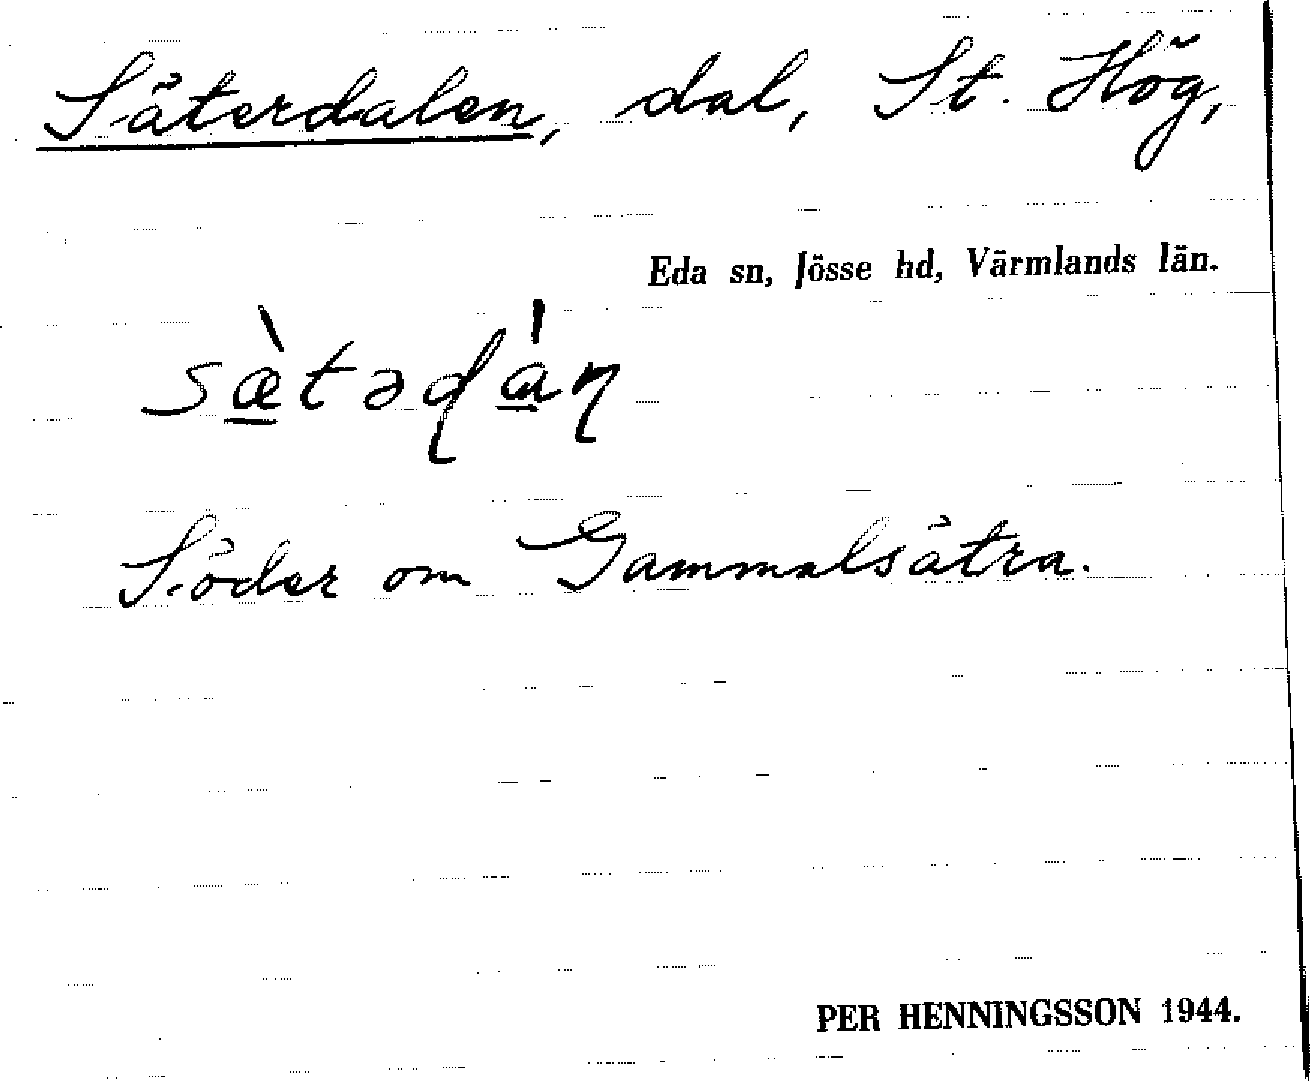 Säterdalen, dal, St. Hög,
Eda sn, Jösse hd, Värmlands län.
sæ̀təɖàɳ
Söder om Gammalsätra.
PER HENNINGSSON 1944.